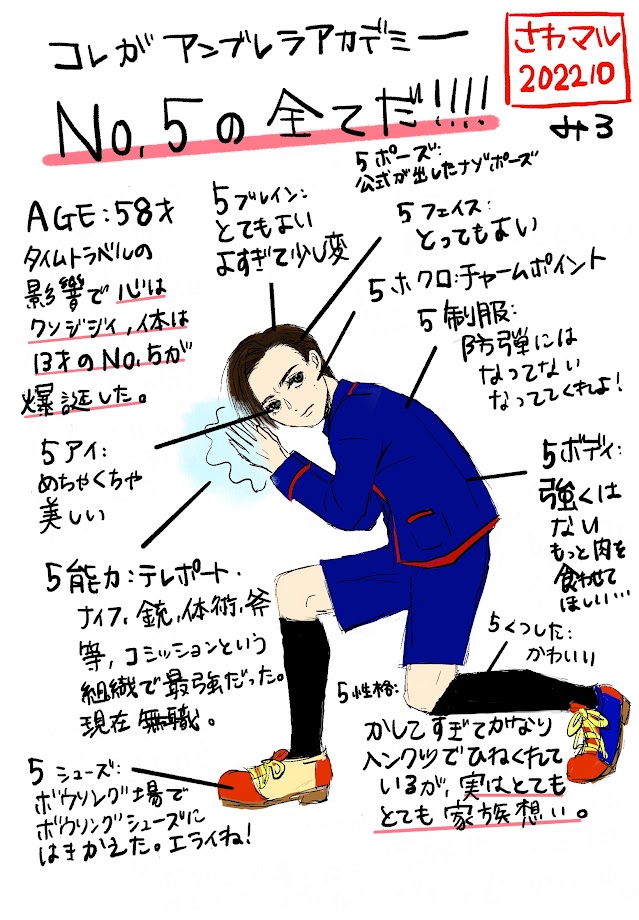 コレガ アンブレラアカデミー
さわマル
202210
No,5の全てだ!!!!
み3
AGE:58才
タイムトラベルの
影響で心は
クソジジイ,体は
13才のNo,5が
爆誕した。
5ブレイン:
とてもよい
よすぎて少し変
5ポーズ:
公式が出したナゾポーズ
5フェイス:
とってもよい
5ホクロ:チャームポイント
5制服:
防弾には
なってない
なっててくれよ!
5アイ:
めちゃくちゃ
美しい
5ボディ:
強くは
ない
もっと肉を
食わせて
ほしい…
5能力:テレポート.
ナイフ,銃,体術,斧
等,コミッションという
組織で最強だった。
現在無職。
5くつした:
かわいい
5性格:
かしこすぎてかなり
ヘンクツでひねくれて
いるが,実はとても
とても家族想い。
5シューズ:
ボウリング場で
ボウリングシューズに
はきかえた。エライね!